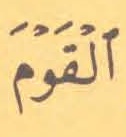 ٱلْقَوْمَ